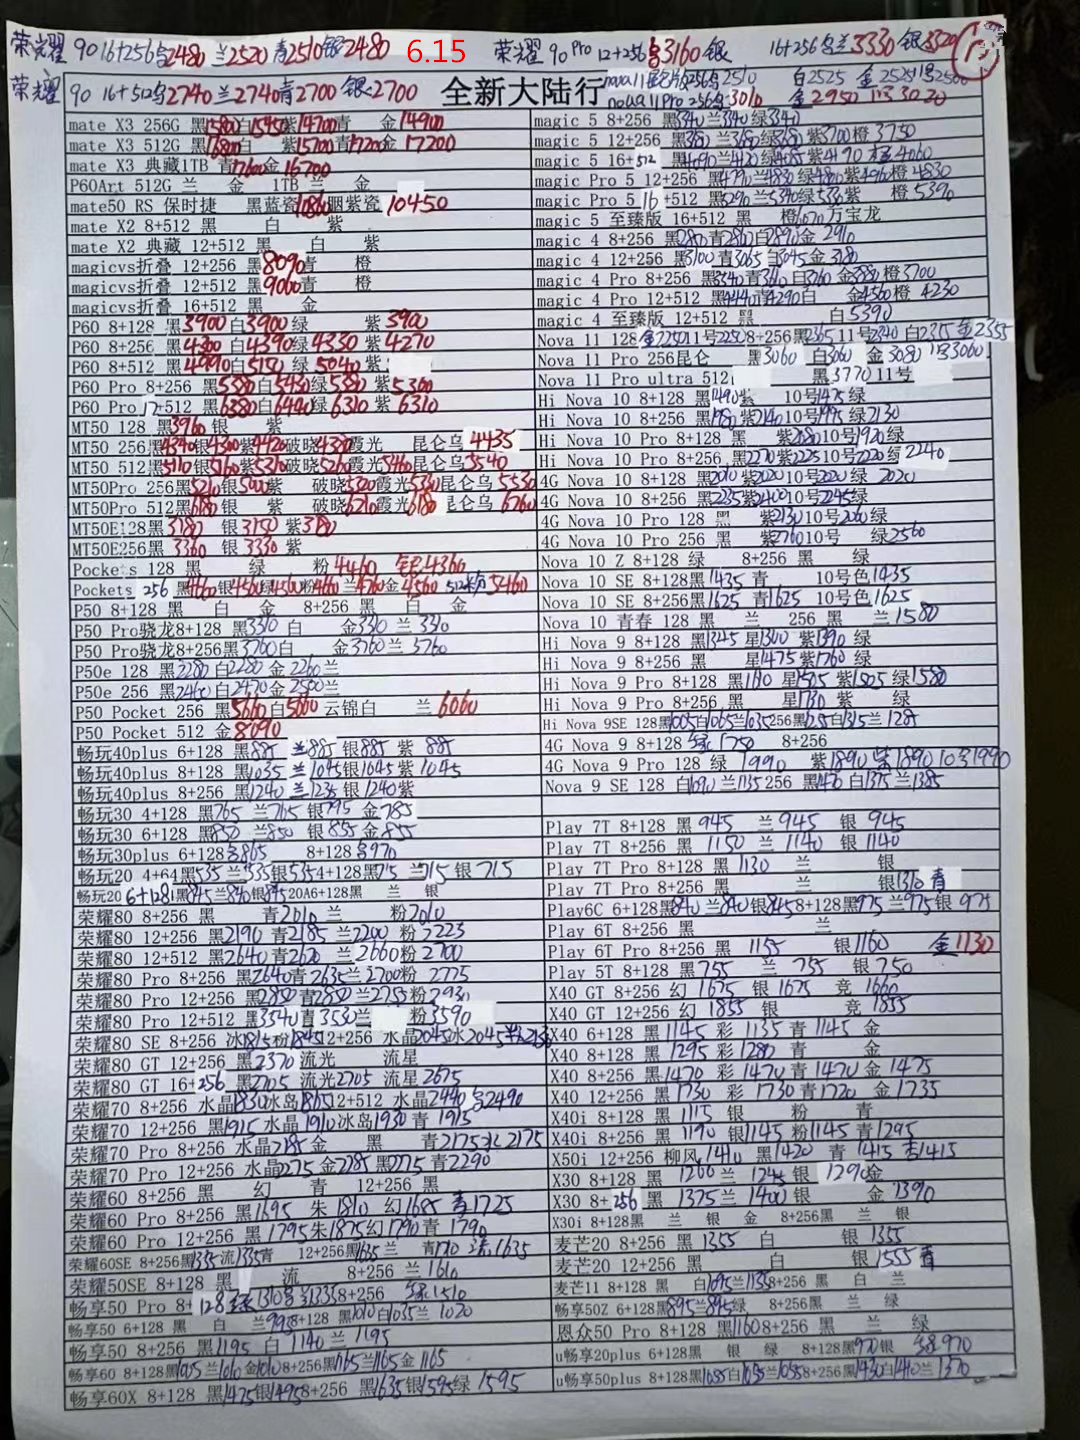 荣耀 90 16+256乌2480 兰2520 青2510 银2480 6.15 荣耀 90 Pro 12+256乌3160 银 16+256乌兰3330 银3320
荣耀 90 16+512乌2740兰2740青2700 银2700 全新大陆行
mate X3 256G 黑15800白15450紫14700青 金14900
mate X3 512G 黑16800白 紫15700青17200金17200
mate X3 典藏1TB 青17600金16700
P60Art 512G 兰 金 1TB 兰 金
mate50 RS 保时捷 黑蓝瓷 胭紫瓷10450
mate X2 8+512 黑 白 紫
mate X2 典藏 12+512 黑 白 紫
magicvs折叠 12+256 黑8090青 橙
magicvs折叠 12+512 黑9060青 橙
magicvs折叠 16+512 黑 金
P60 8+128 黑3900白3900绿 紫3900
P60 8+256 黑4300白4390绿4330 紫4270
P60 8+512 黑4990白5150 绿5040紫
P60 Pro 8+256 黑5380白5430绿5380 紫5360
P60 Pro 12+512 黑6380白6490绿6310 紫6310
MT50 128 黑3960银 紫
MT50 256黑4340银4300紫4420破晓4380霞光 昆仑乌4435
MT50 512黑5110银5160紫5310破晓5260霞光5460昆仑乌5540
MT50Pro 256黑5210银 紫 破晓5320霞光5330昆仑乌5530
MT50Pro 512黑6180银 紫 破晓6210霞光6180昆仑乌6760
MT50E128黑3180 银3150紫3180
MT50E256黑3360 银3330紫
Pockets 128 黑 绿 粉4460 银4360
Pockets 256 黑4660银4560绿4560粉4660兰4760金4560 5460
P50 8+128 黑 白 金 8+256 黑 白 金
P50 Pro骁龙8+128 黑3310白 金3310兰3310
P50 Pro骁龙8+256黑3760白 金3760兰3760
P50e 128 黑2280白2280金2260兰
P50e 256 黑2460白2470金2500兰
P50 Pocket 256 黑5660白5660云锦白 兰6060
P50 Pocket 512 金8090
畅玩40plus 6+128 黑885 兰885银885 紫885
畅玩40plus 8+128 黑1035 兰1045银1045紫1045
畅玩40plus 8+256 黑1240兰1235银1240紫
畅玩30 4+128 黑765 兰765 银795 金785
畅玩30 6+128 黑850 兰850 银855金855
畅玩30plus 6+128各865 8+128各970
畅玩20 4+64黑535兰535银535 4+128黑715兰715银715
畅玩20 6+128黑845兰840银845 20A6+128黑 兰 银
荣耀80 8+256 黑 青2010兰 粉2010
荣耀80 12+256 黑2190青2185兰2200粉2223
荣耀80 12+512 黑2640青2620 兰2660粉2700
荣耀80 Pro 8+256 黑2640青2635兰2700粉 2775
荣耀80 Pro 12+256 黑2850青2850兰2755粉2930
荣耀80 Pro 12+512 黑3540青3530兰 粉3590
荣耀80 SE 8+256 冰1815粉1845 12+256 水晶2045冰2045
荣耀80 GT 12+256 黑2370流光 流星
荣耀80 GT 16+256 黑2705流光2705 流星2675
荣耀70 8+256 水晶1830冰岛1865 12+512 水晶2440各2490
荣耀70 12+256 黑1915水晶1910冰岛1930青1915
荣耀70 Pro 8+256 水晶2185金 黑 青2175 2175
荣耀70 Pro 12+256 水晶2275金2285黑2275青2290
荣耀60 8+256 黑 幻 青 12+256 黑
荣耀60 Pro 8+256 黑1695 朱1810幻1685青1725
荣耀60 Pro 12+256 黑1795朱1875幻1790青1790
荣耀60SE 8+256黑1335流1335青 12+256黑1635兰 青1710 流1635
荣耀50SE 8+128 黑 流 8+256 兰1610
畅享50 Pro 8+128 1310 1335 8+256 绿1510
畅享50 6+128 黑 白 兰995 8+128黑1010白1035兰1020
畅享50 8+256 黑1195白1140兰1195
畅享60 8+128黑1005兰1010金1010 8+256黑1165兰1165金1165
畅享60X 8+128 黑1475银1495 8+256 黑1635银1595绿1595
nova11昆仑版256乌2510 白2525 金2525
nova11Pro 256乌3010 金2950 11号3020
magic 5 8+256 黑3340兰3340绿3340
magic 5 12+256 黑3680兰3680绿3680紫3700橙3750
magic 5 16+512 黑4090兰4120绿4085紫4190橙4060
magic Pro 5 12+256 黑4790兰4830绿4800紫4960橙4830
magic Pro 5 16+512 黑5290兰5340绿5330紫 橙5390
magic 5 至臻版 16+512 黑 橙6070万宝龙
magic 4 8+256 黑2850青2810白2890金2910
magic 4 12+256 黑3100青3065白3045金3180
magic 4 Pro 8+256 黑3540青3410白3260金3880橙3700
magic 4 Pro 12+512 黑4440青4290白 金4560橙4230
magic 4 至臻版 12+512 黑 白5390
Nova 11 128金2250 11号2250 8+256黑2365 11号2340白2315金2355
Nova 11 Pro 256昆仑 黑3060 白3060 金3080 11号3060
Nova 11 Pro ultra 512 黑3770 11号
Hi Nova 10 8+128 黑1490紫 10号1475绿
Hi Nova 10 8+256 黑1980紫2140 10号1995绿2130
Hi Nova 10 Pro 8+128 黑 紫2080 10号1920绿
Hi Nova 10 Pro 8+256 黑2270紫2225 10号2220绿2240
4G Nova 10 8+128 黑2010紫2020 10号2020绿2020
4G Nova 10 8+256 黑2235紫2400 10号2245绿
4G Nova 10 Pro 128 黑 紫2130 10号2060绿
4G Nova 10 Pro 256 黑 紫2760 10号 绿2560
Nova 10 Z 8+128 绿 8+256 黑 绿
Nova 10 SE 8+128黑1435青 10号色1435
Nova 10 SE 8+256黑1625青1625 10号色1625
Nova 10 青春 128 黑 兰 256 黑 兰1580
Hi Nova 9 8+128 黑1345星1300紫1390绿
Hi Nova 9 8+256 黑 星1475紫1760绿
Hi Nova 9 Pro 8+128 黑1180星1505紫1505绿1580
Hi Nova 9 Pro 8+256 黑 星1730紫 绿
Hi Nova 9SE 128黑1005白1065兰1035 256黑1215白1315兰1285
4G Nova 9 8+128 绿1750 8+256
4G Nova 9 Pro 128 绿1990 紫1890紫1890 10号1990
Nova 9 SE 128 白1090兰1135 256 黑1470白1375兰1385
Play 7T 8+128 黑945 兰945 银945
Play 7T 8+256 黑1150 兰1140 银1140
Play 7T Pro 8+128 黑1130 兰 银
Play 7T Pro 8+256 黑 银1310青
Play6C 6+128黑840兰840银845 8+128黑975兰975银975
Play 6T 8+256 黑 兰
Play 6T Pro 8+256 黑1155 银1160 金1130
Play 5T 8+128 黑755 兰755 银750
X40 GT 8+256 幻1675 银1675 竞1660
X40 GT 12+256 幻1855 银 竞1855
X40 6+128 黑1145彩1135青1145金
X40 8+128 黑1295彩1280青 金
X40 8+256 黑1470彩1470青1470金1475
X40 12+256 黑1730 彩1730青1720金1735
X40i 8+128 黑1115银 粉 青
X40i 8+256 黑1190银1145粉1145青1295
X50i 12+256 柳风1410黑1420 青1415杏1415
X30 8+128 黑1260兰1245银1290金
X30 8+256 黑1375兰1400银 金1390
X30i 8+128黑 兰 银 金 8+256黑 兰 银
麦芒20 8+256 黑1355 白 银1355
麦芒20 12+256 黑 白 银1555青
麦芒11 8+128 黑 白1095兰1135 8+256 黑 白 兰
畅享50Z 6+128黑895兰895绿 8+256黑 兰 绿
恩众50 Pro 8+128 黑1160 8+256 黑 兰 绿
u畅享20plus 6+128黑 银 绿 8+128黑970银 绿970
u畅享50plus 8+128黑1085白1055兰1055 8+256黑1430白1410兰1370